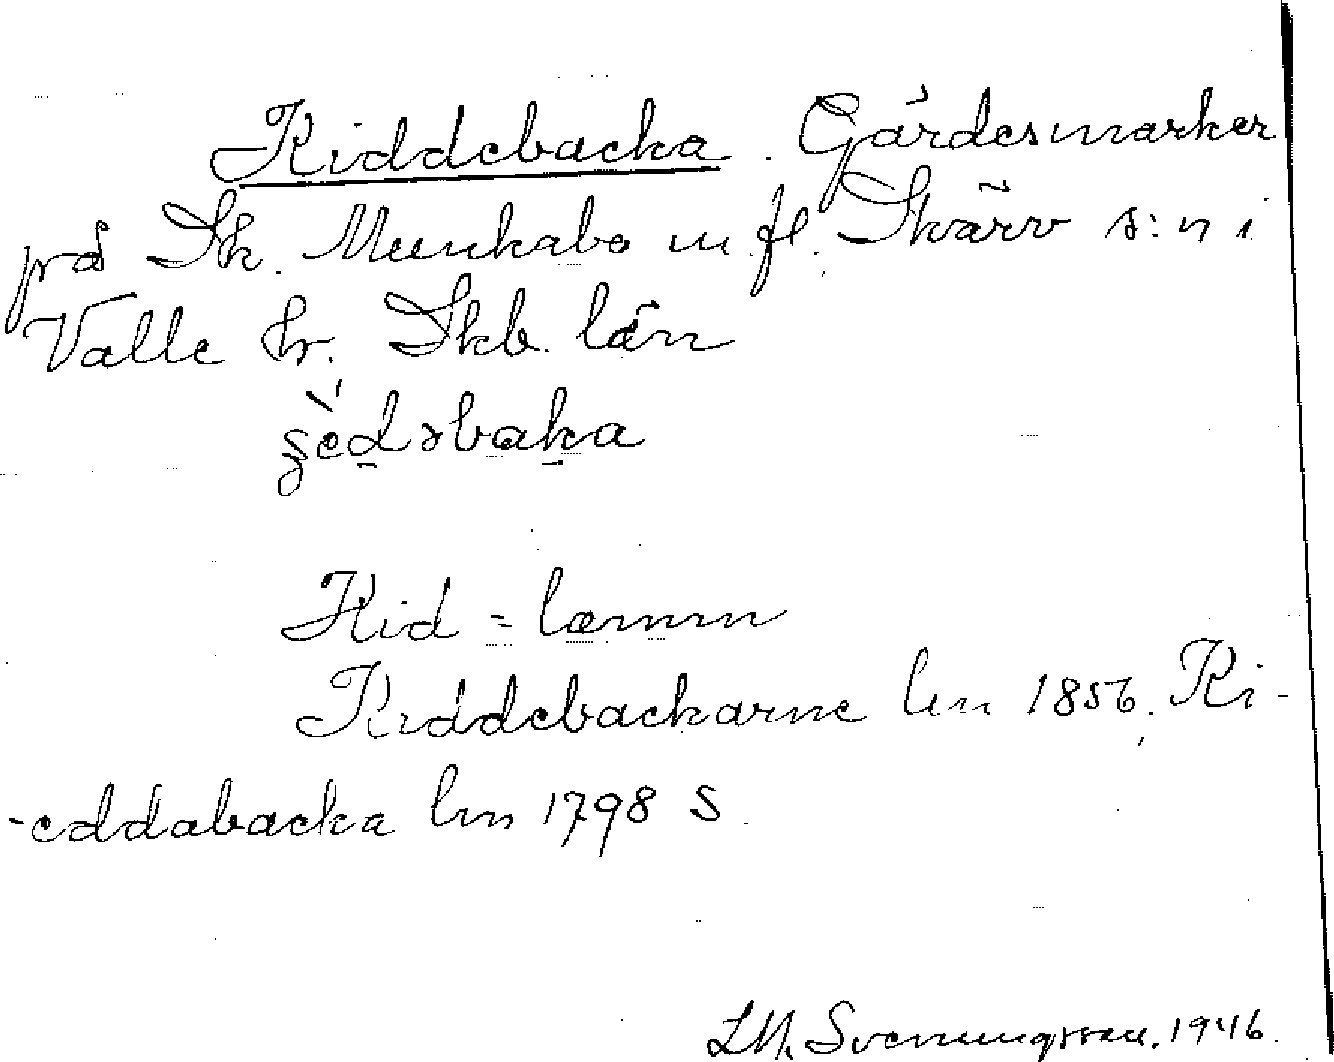 Kiddebacka. Gärdesmarker
på Sk. Munkabo m. fl. Skärv s:n i
Valle hr. Skb. län
Kid = lamm
Kiddebackarne lm 1856. Ki-
-eddabacka lm 1798 S
Svenungsson. 1946.